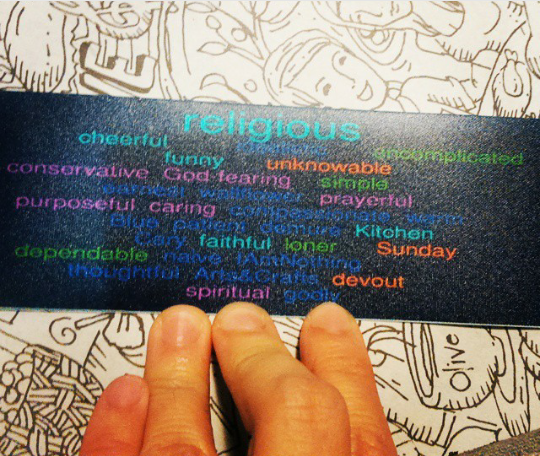 religious
cheerful uncomplicated
funny unknowable
conservative God-fearing simple
earnest wallflower prayerful
purposeful caring compassionate warm
Blue patient demure Kitchen
faithful loner Sunday
dependable naive IActNothing
thoughtful Arts&Crafts devout
spiritual godly
Olive